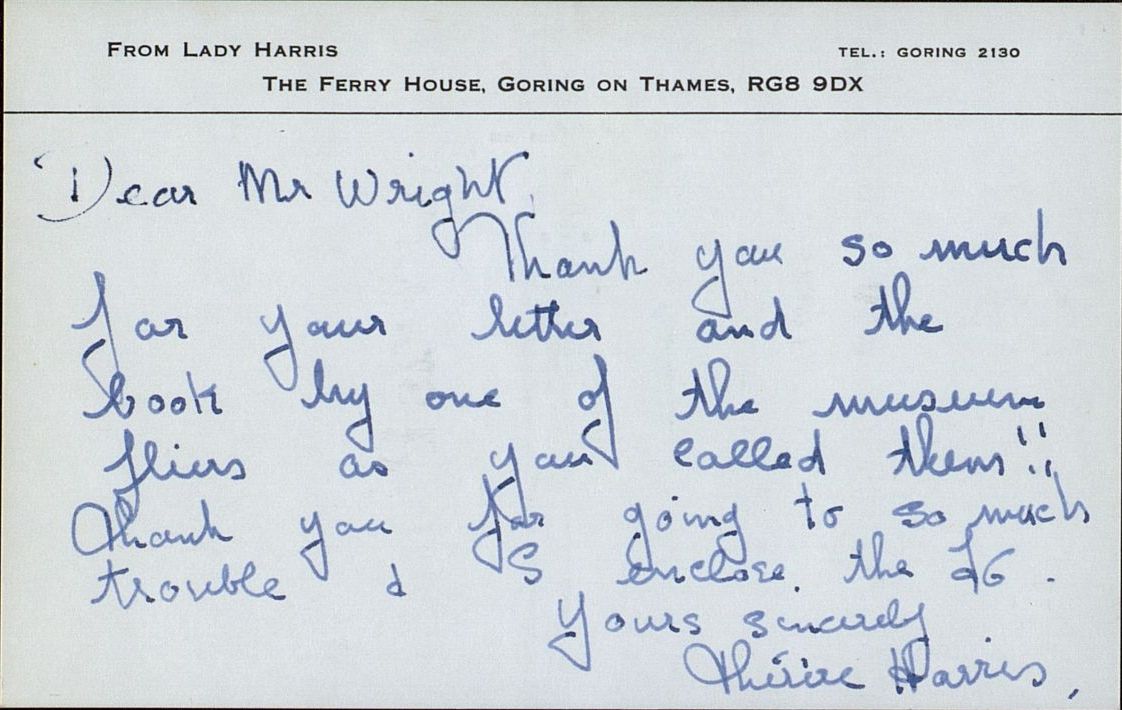 FROM LADY HARRIS TEL.: GORING 2130
THE FERRY HOUSE, GORING ON THAMES, RG8 9DX
Dear Mr Wright,
Thank you so much
for your letter and the
book by one of the museum
fliers as you called them!!
Thank you for going to so much
trouble & I enclose the £6.
Yours sincerely
Thérèse Harris,